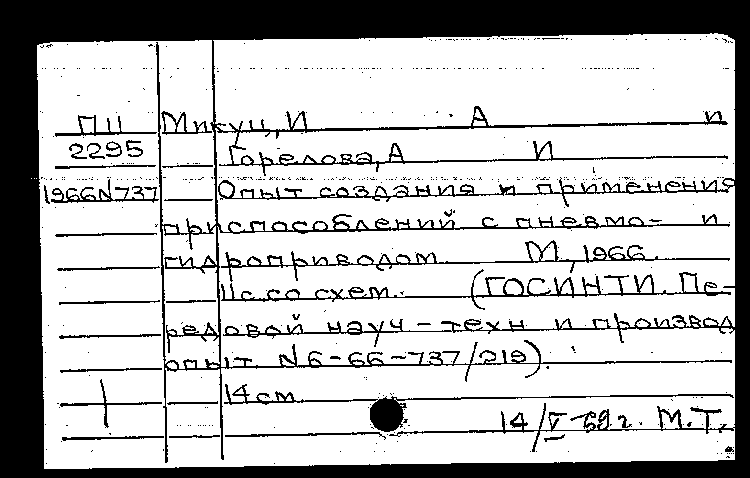 П11 Микуц, И А и
2295 Горелова, А И
1966N737 Опыт создания и применения
приспособлений с пневмо- и
гидроприводом. М., 1966.
11с. со схем. (ГОСИНТИ. Пе-
редовой науч-техн и производ
опыт. N6-66-737/219).
14 см.
14/V-69г. М.Т.